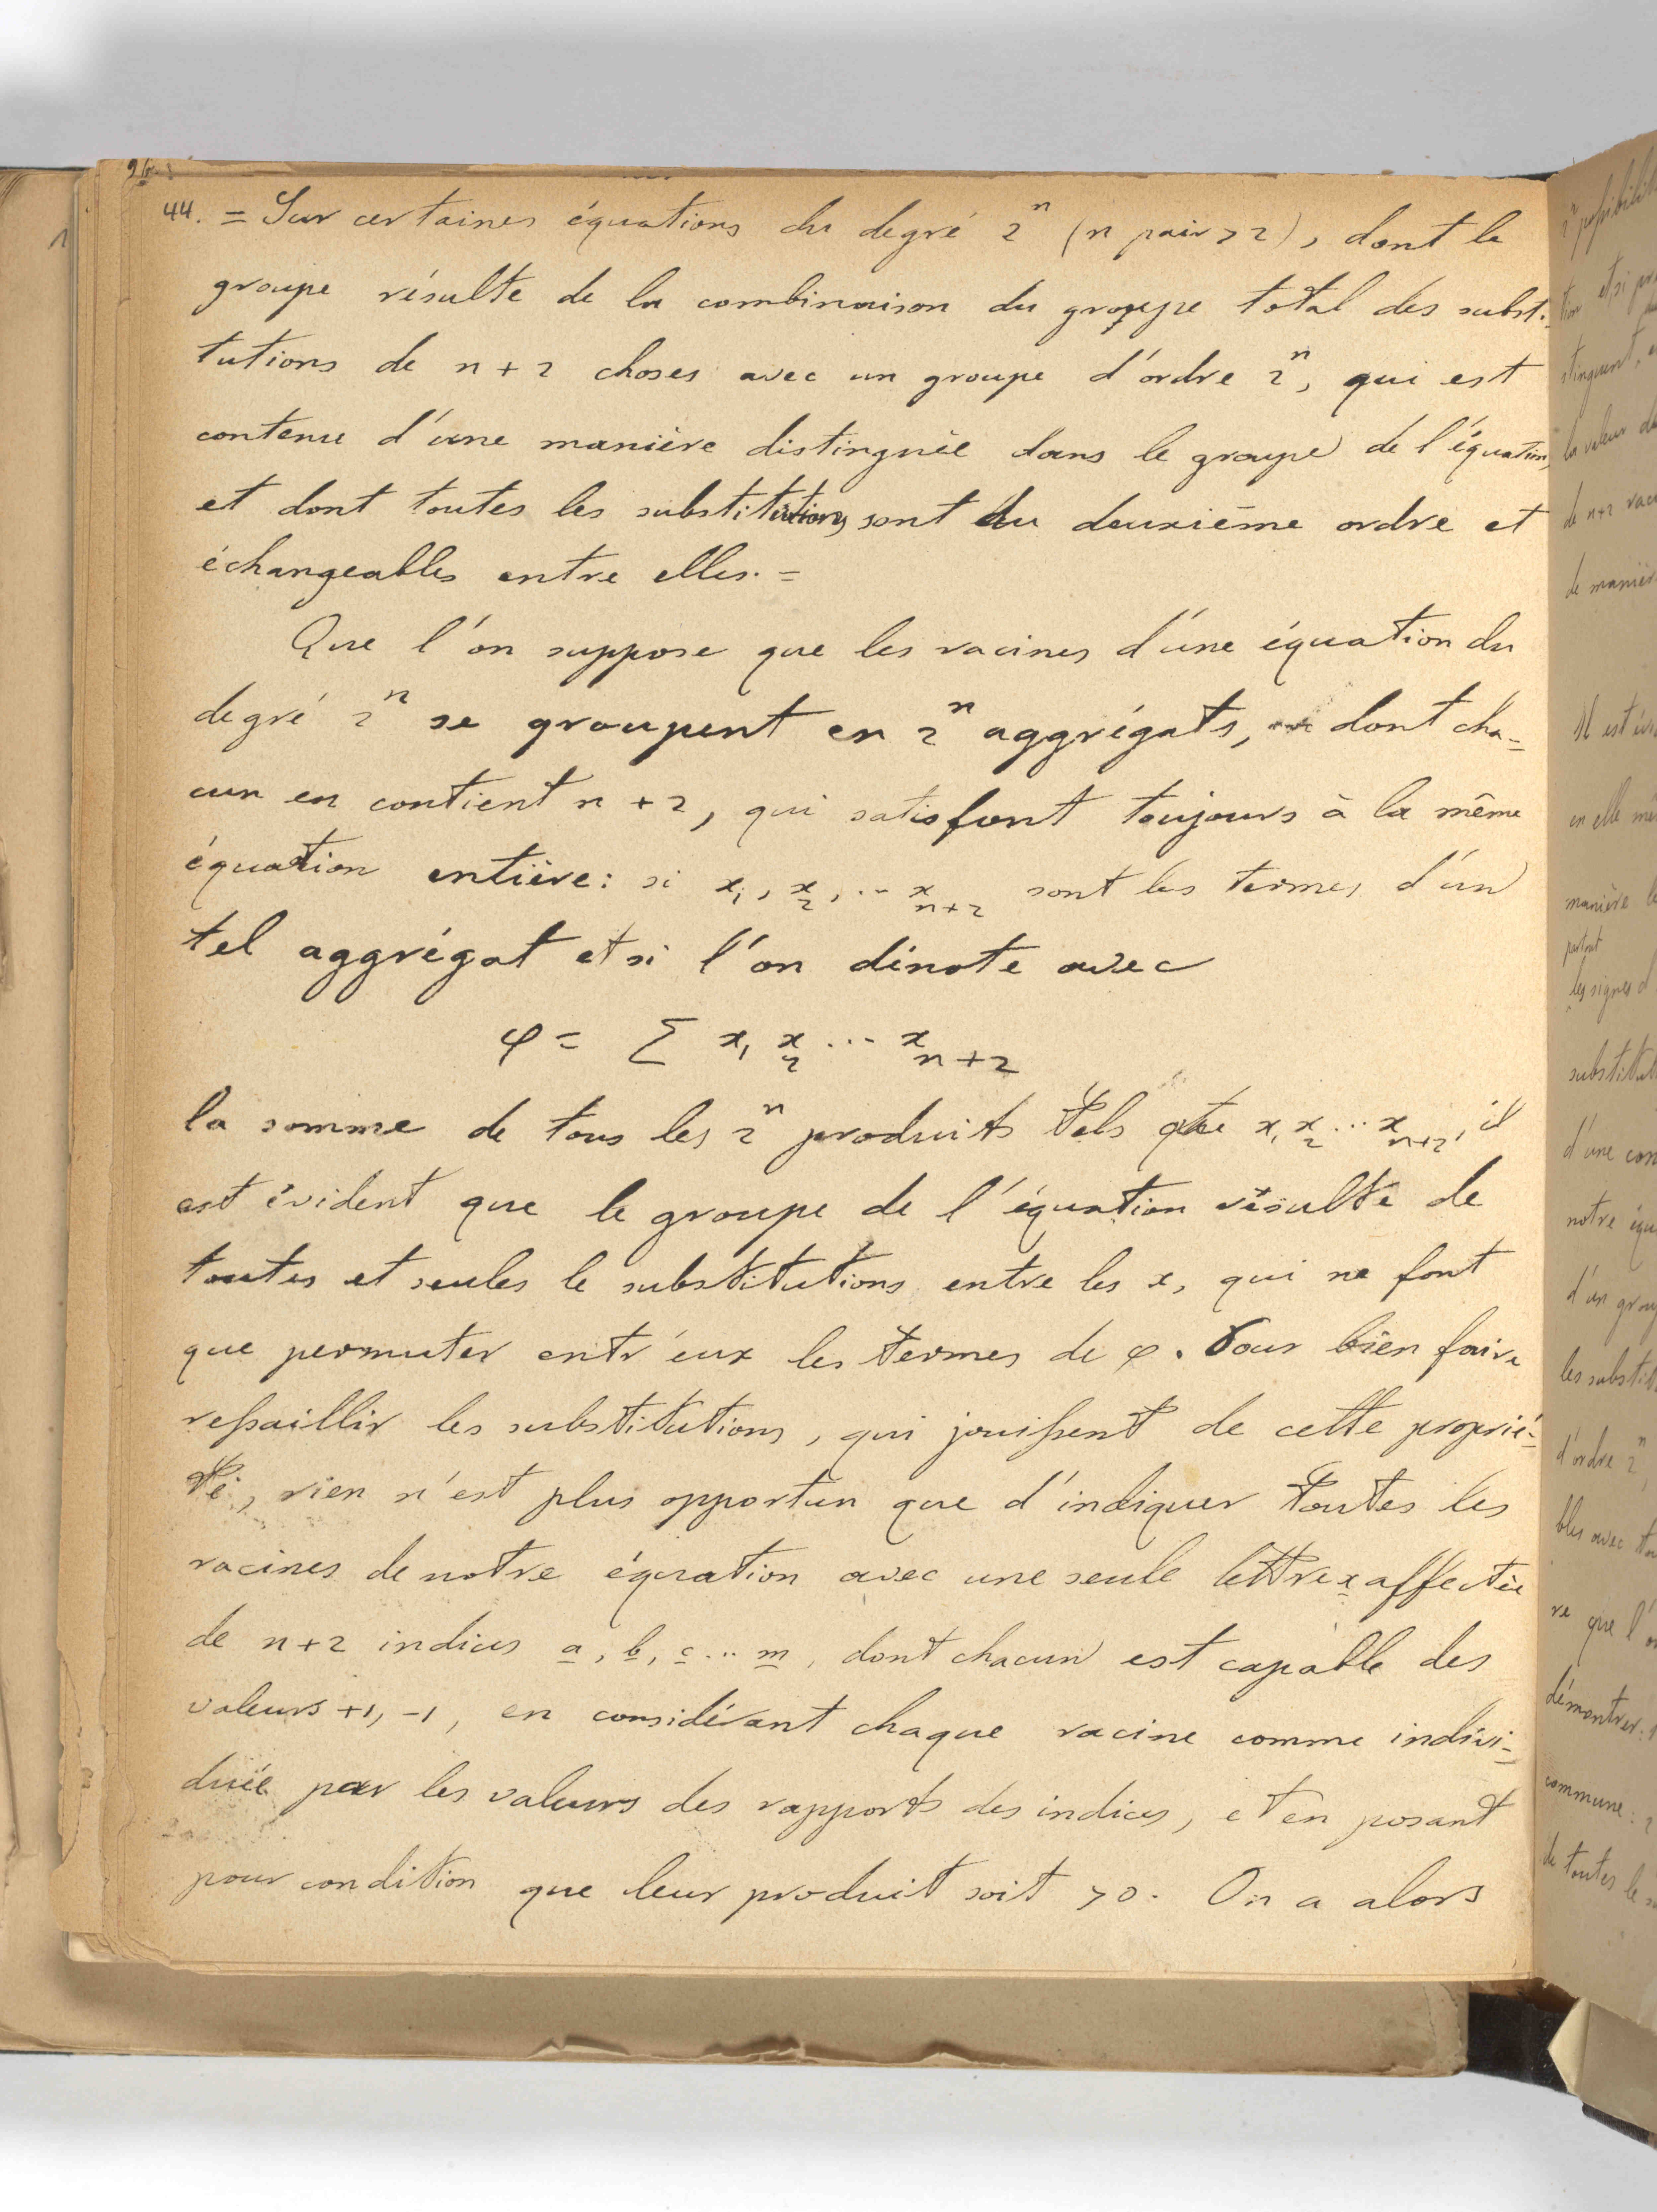 44. = Sur certaines équations du degré 2ⁿ (n pair > 2), dont le
groupe résulte de la combinaison du groupe total des substi-
tutions de n + 2 choses avec un groupe d'ordre 2ⁿ, qui est
contenu d'une manière distinguée dans le groupe de l'équation,
et dont toutes les substitutions sont du deuxième ordre et
échangeables entre elles. =
Que l'on suppose que les racines d'une équation du
degré 2ⁿ se groupent en 2ⁿ aggrégats, dont cha=
cun en contient n + 2, qui satisfont toujours à la même
équation entière: si x₁, x₂, ... xₙ₊₂ sont les termes d'un
tel aggrégat et si l'on dénote avec
φ = Σ x₁ x₂ ... xₙ₊₂
la somme de tous les 2ⁿ produits tels que x₁ x₂ ... xₙ₊₂, il
est évident que le groupe de l'équation résulte de
toutes et seules le substitutions entre les x, qui ne font
que permuter entr'eux les termes de φ. Pour bien faire
ressaillir les substitutions, qui jouissent de cette proprié=
té, rien n'est plus opportun que d'indiquer toutes les
racines de notre équation avec une seule lettre x affectée
de n+2 indices a, b, c ... m, dont chacun est capable des
valeurs +1, -1, en considérant chaque racine comme indivi=
duée par les valeurs des rapports des indices, et en posant
pour condition que leur produit soit > 0. On a alors